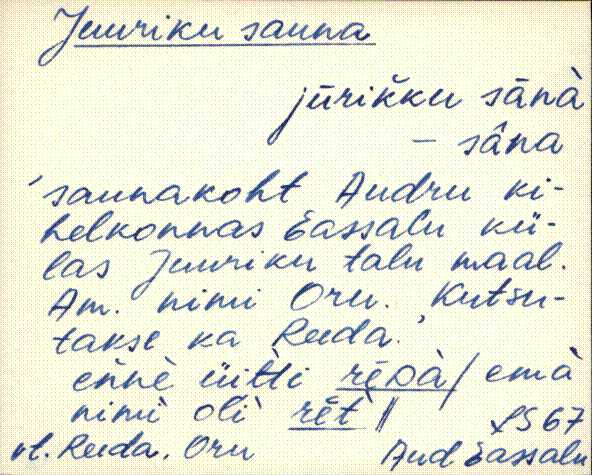 Juuriku sauna
jūrik̆ku sānà
– sâna
'saunakoht Audru ki-
helkonnas Eassalu kü-
las Juuriku talu maal.
Am. nimi Oru. Kutsu-
takse ka Reeda.'
ennè üitti rēDà / emà
nimì olì rēt̀ ||
LS 67
vt. Reeda, Oru
Aud Eassalu